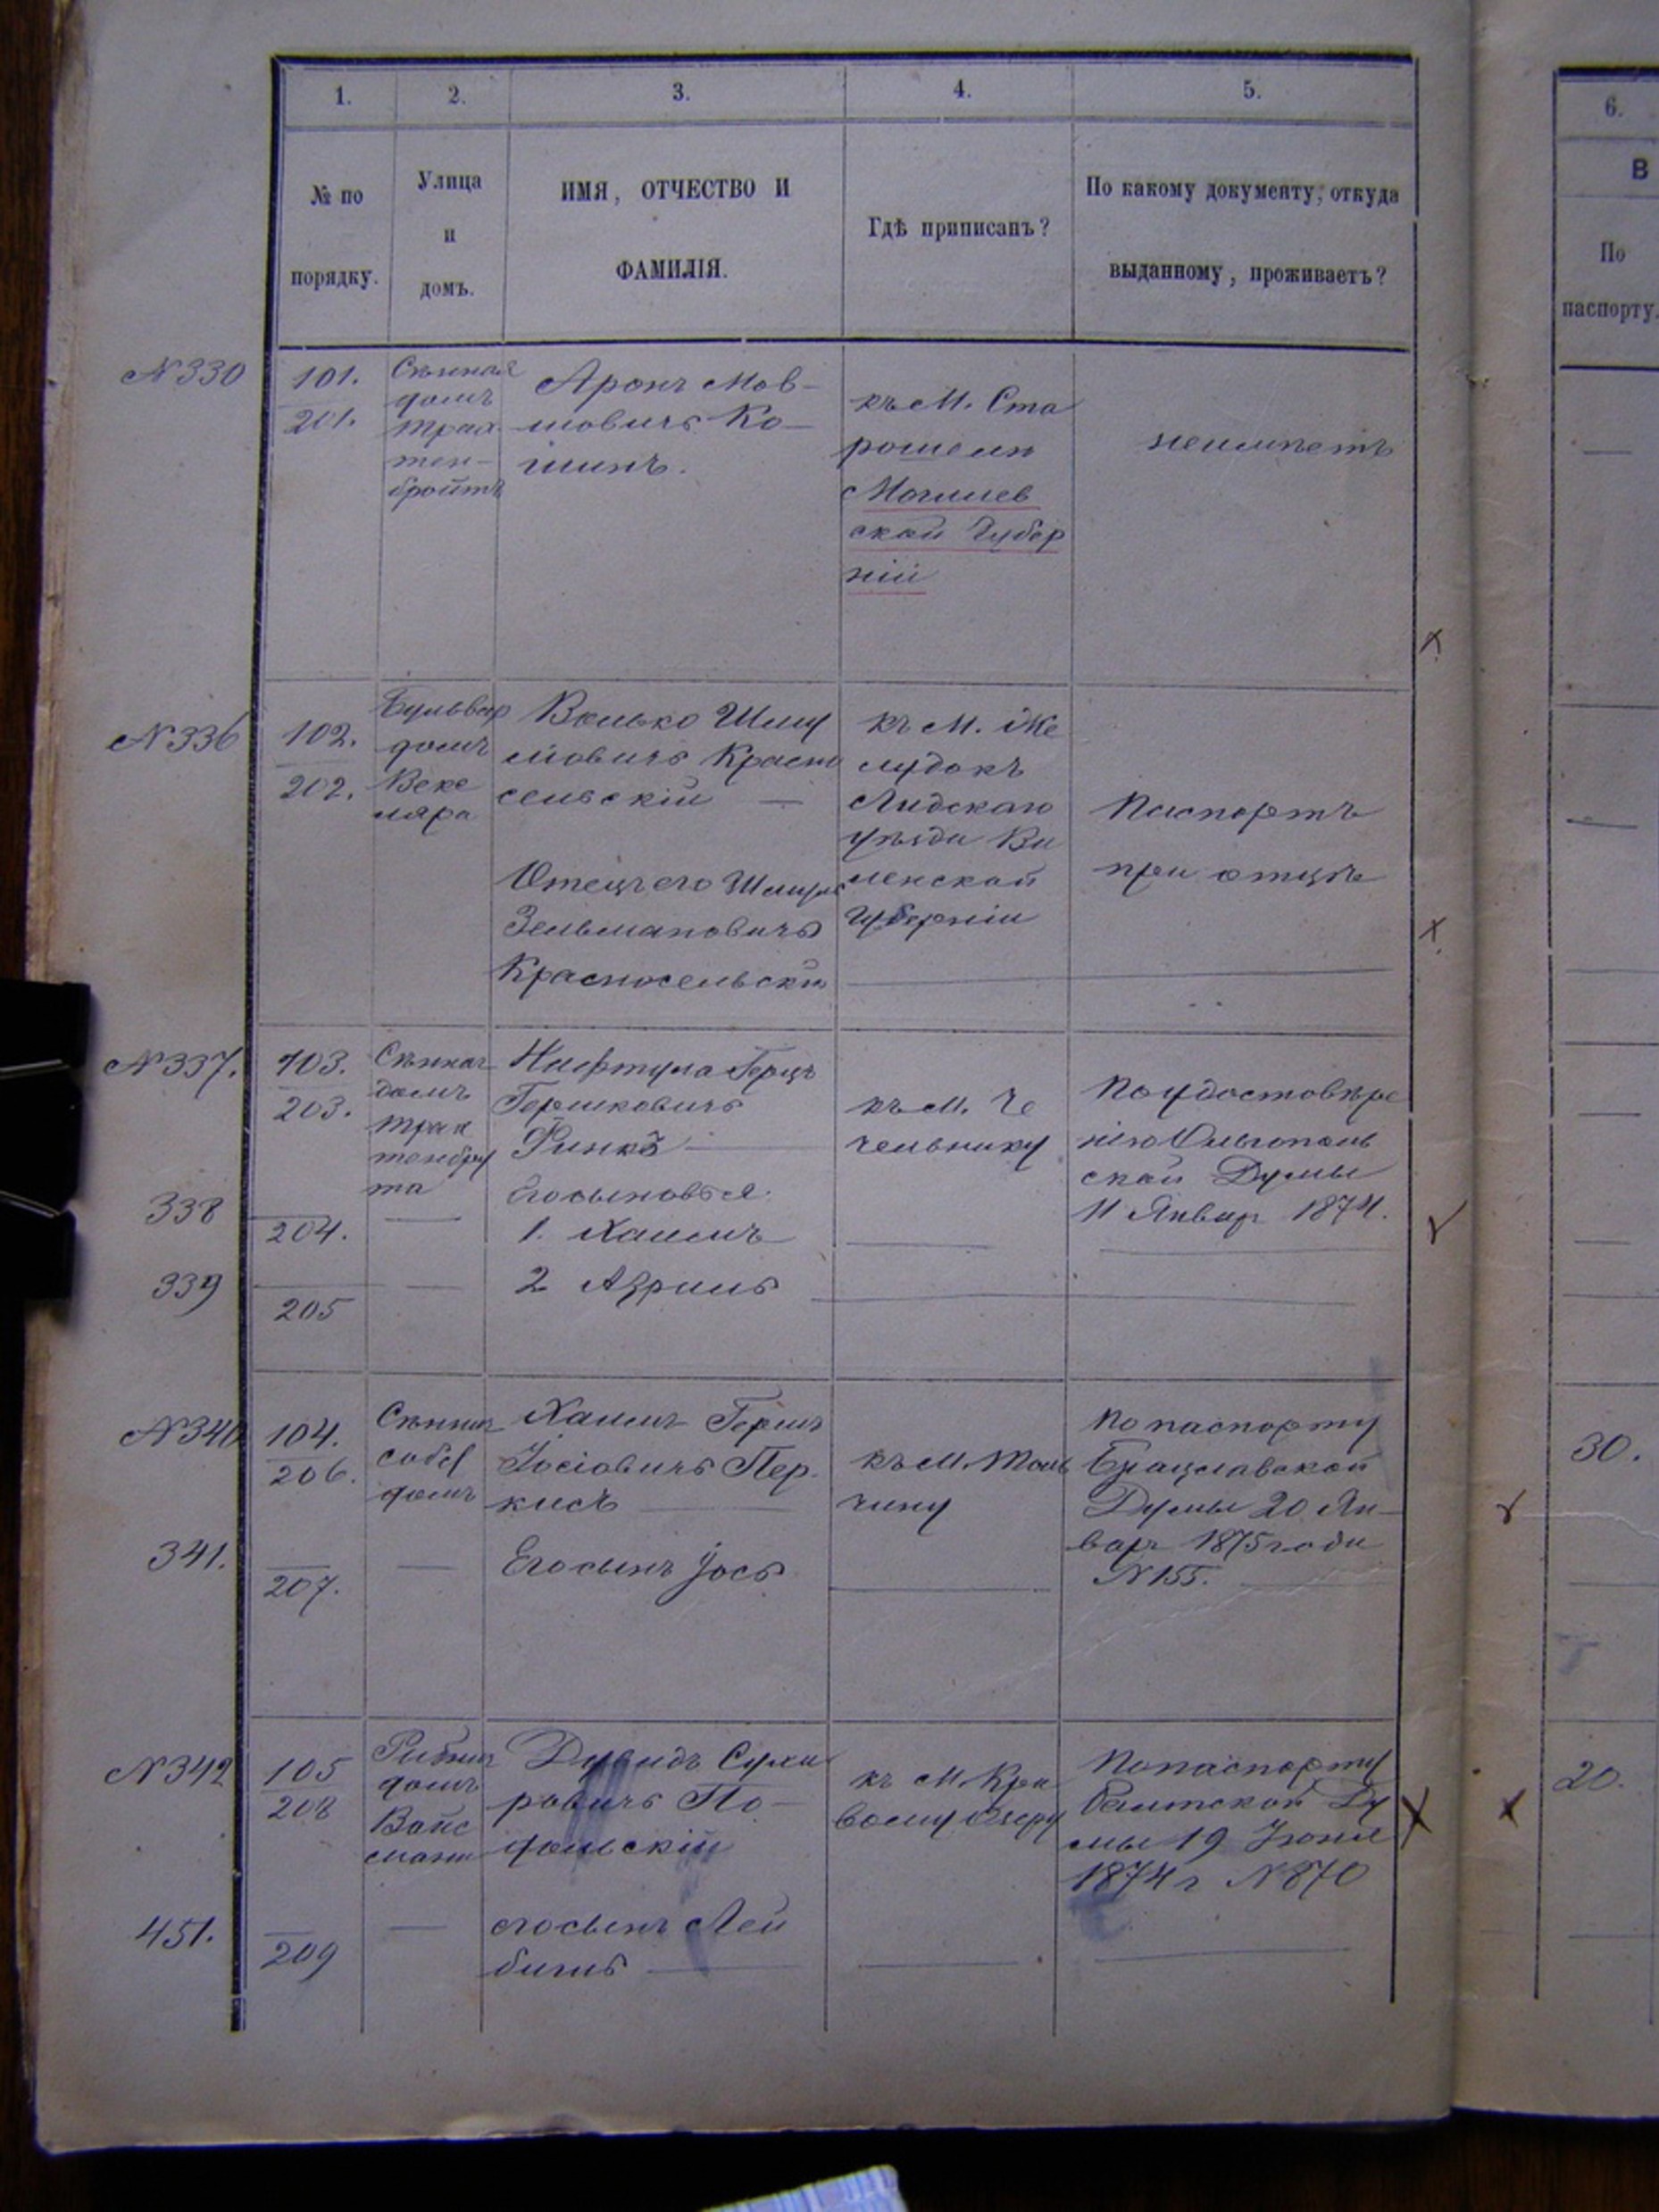 1. 2. 3. 4. 5.
6.
№ по
порядку.
Улица
и
домъ.
ИМЯ, ОТЧЕСТВО И
ФАМИЛІЯ.
Гдѣ приписанъ?
По какому документу, откуда
выданному, проживаетъ?
В
По
паспорту.
N 330
101.
201.
Сѣнная
домъ
Трах
тен-
бройтъ
Аронъ Мов-
шовичъ Ко-
шинъ.
къ М. Ста
Могилев
ской Губер
ніи
неимѣетъ
N 336
102.
202.
Бульвар
домъ
Веке
ляра
Велько Шму
йловичъ Красно
сельскій —
Отецъ его Шмуль
Зельмановичъ
Красносельскій
къ М. Же
лудокъ
Лидскаго
уѣзда Ви
ленской
Губерніи
Паспортъ
при отцѣ
N 337.
103.
203.
Сѣнная
домъ
Трах
тенбру
та
Нафтула Герцъ
Гершковичъ
Финкъ —
Его сыновья:
къ М. Че
чельнику
По удостовѣре
нію Ольгополь
ской Думы
11 Январ 1874.
338
204.
—
1. Хаимъ
339
205
—
2 Азриль
N 340
104.
206.
Сѣнная
соб
домъ
Хаимъ Гершъ
Іосіовичъ Пер-
кисъ —
къ М. Туль
чину
По паспорту
Брацлавской
Думы 20 Ян-
варя 1875 года
N 155.
30.
341.
207.
—
Его сынъ Іось
N 342
105
208
Рибная
домъ
Вайс
мана
Дувидъ Сухи
ровичъ По-
дольскій
къ М. Кри
вому Озеру
По паспорту
Балтской Ду
мы 19 Іюня
1874 г N 870
20.
451.
209
—
его сынъ Лей
бишъ —